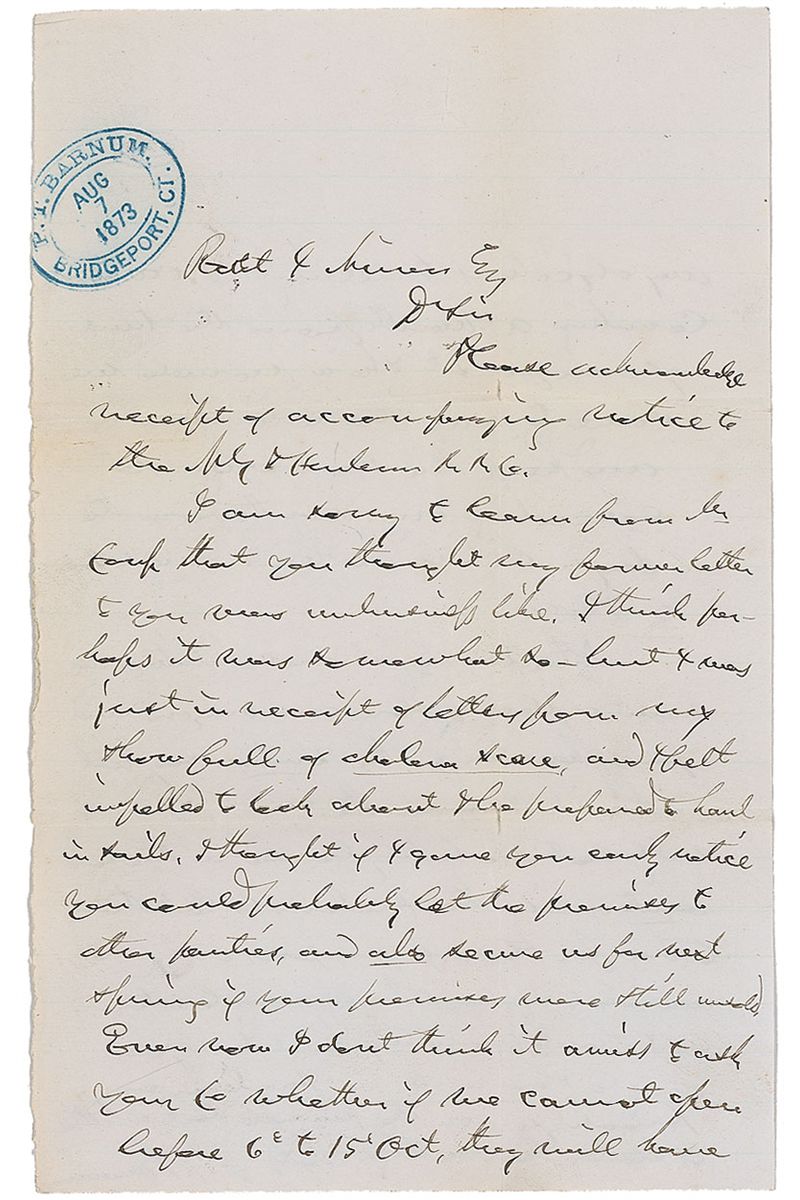 P. T. BARNUM.
AUG
7
1873
BRIDGEPORT, CT.
Robt & Niven Esq
Dr Sir
Please acknowledge
receipt of accompanying notice to
the NY & Harlem R R Co.
I am sorry to learn from Mr
Coup that you thought my former letter
to you was unbusiness like. I think per-
haps it was somewhat so - but I was
just in receipt of letters from my
show full of cholera scare, and I felt
impelled to look about & be prepared to haul
in sails. I thought if I gave you early notice
you could probably let the premises to
other parties, and also secure us for next
spring if your premises were still unsold.
Even now I dont think it amiss to ask
your Co whether if we cannot open
before 6th to 15th Oct, they will have